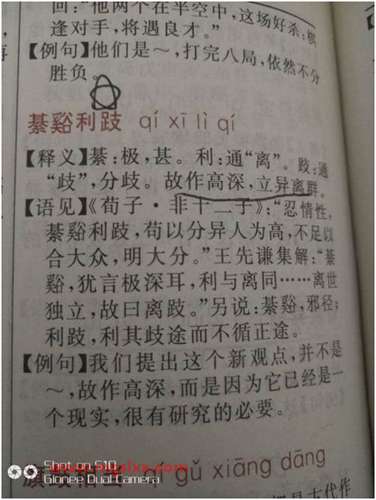 回:“他两个在半空中,这场好杀:棋
逢对手,将遇良才。”
【例句】他们是~,打完八局,依然不分
胜负。
綦谿利跂 qí xī lì qí
【释义】綦:极,甚。利:通“离”。跂:通
“歧”,分歧。故作高深,立异离群。
【语见】《荀子·非十二子》:“忍情性,
綦谿利跂,苟以分异人为高,不足以
合大众,明大分。”王先谦集解:“綦
谿,犹言极深耳,利与离同……离世
独立,故曰离跂。”另说:綦谿,邪径;
利跂,利其歧途而不循正途。
【例句】我们提出这个新观点,并不是
~,故作高深,而是因为它已经是一
个现实,很有研究的必要。
Shot on S10
Gionee Dual Camera
旗鼓相当 qí gǔ xiāng dāng